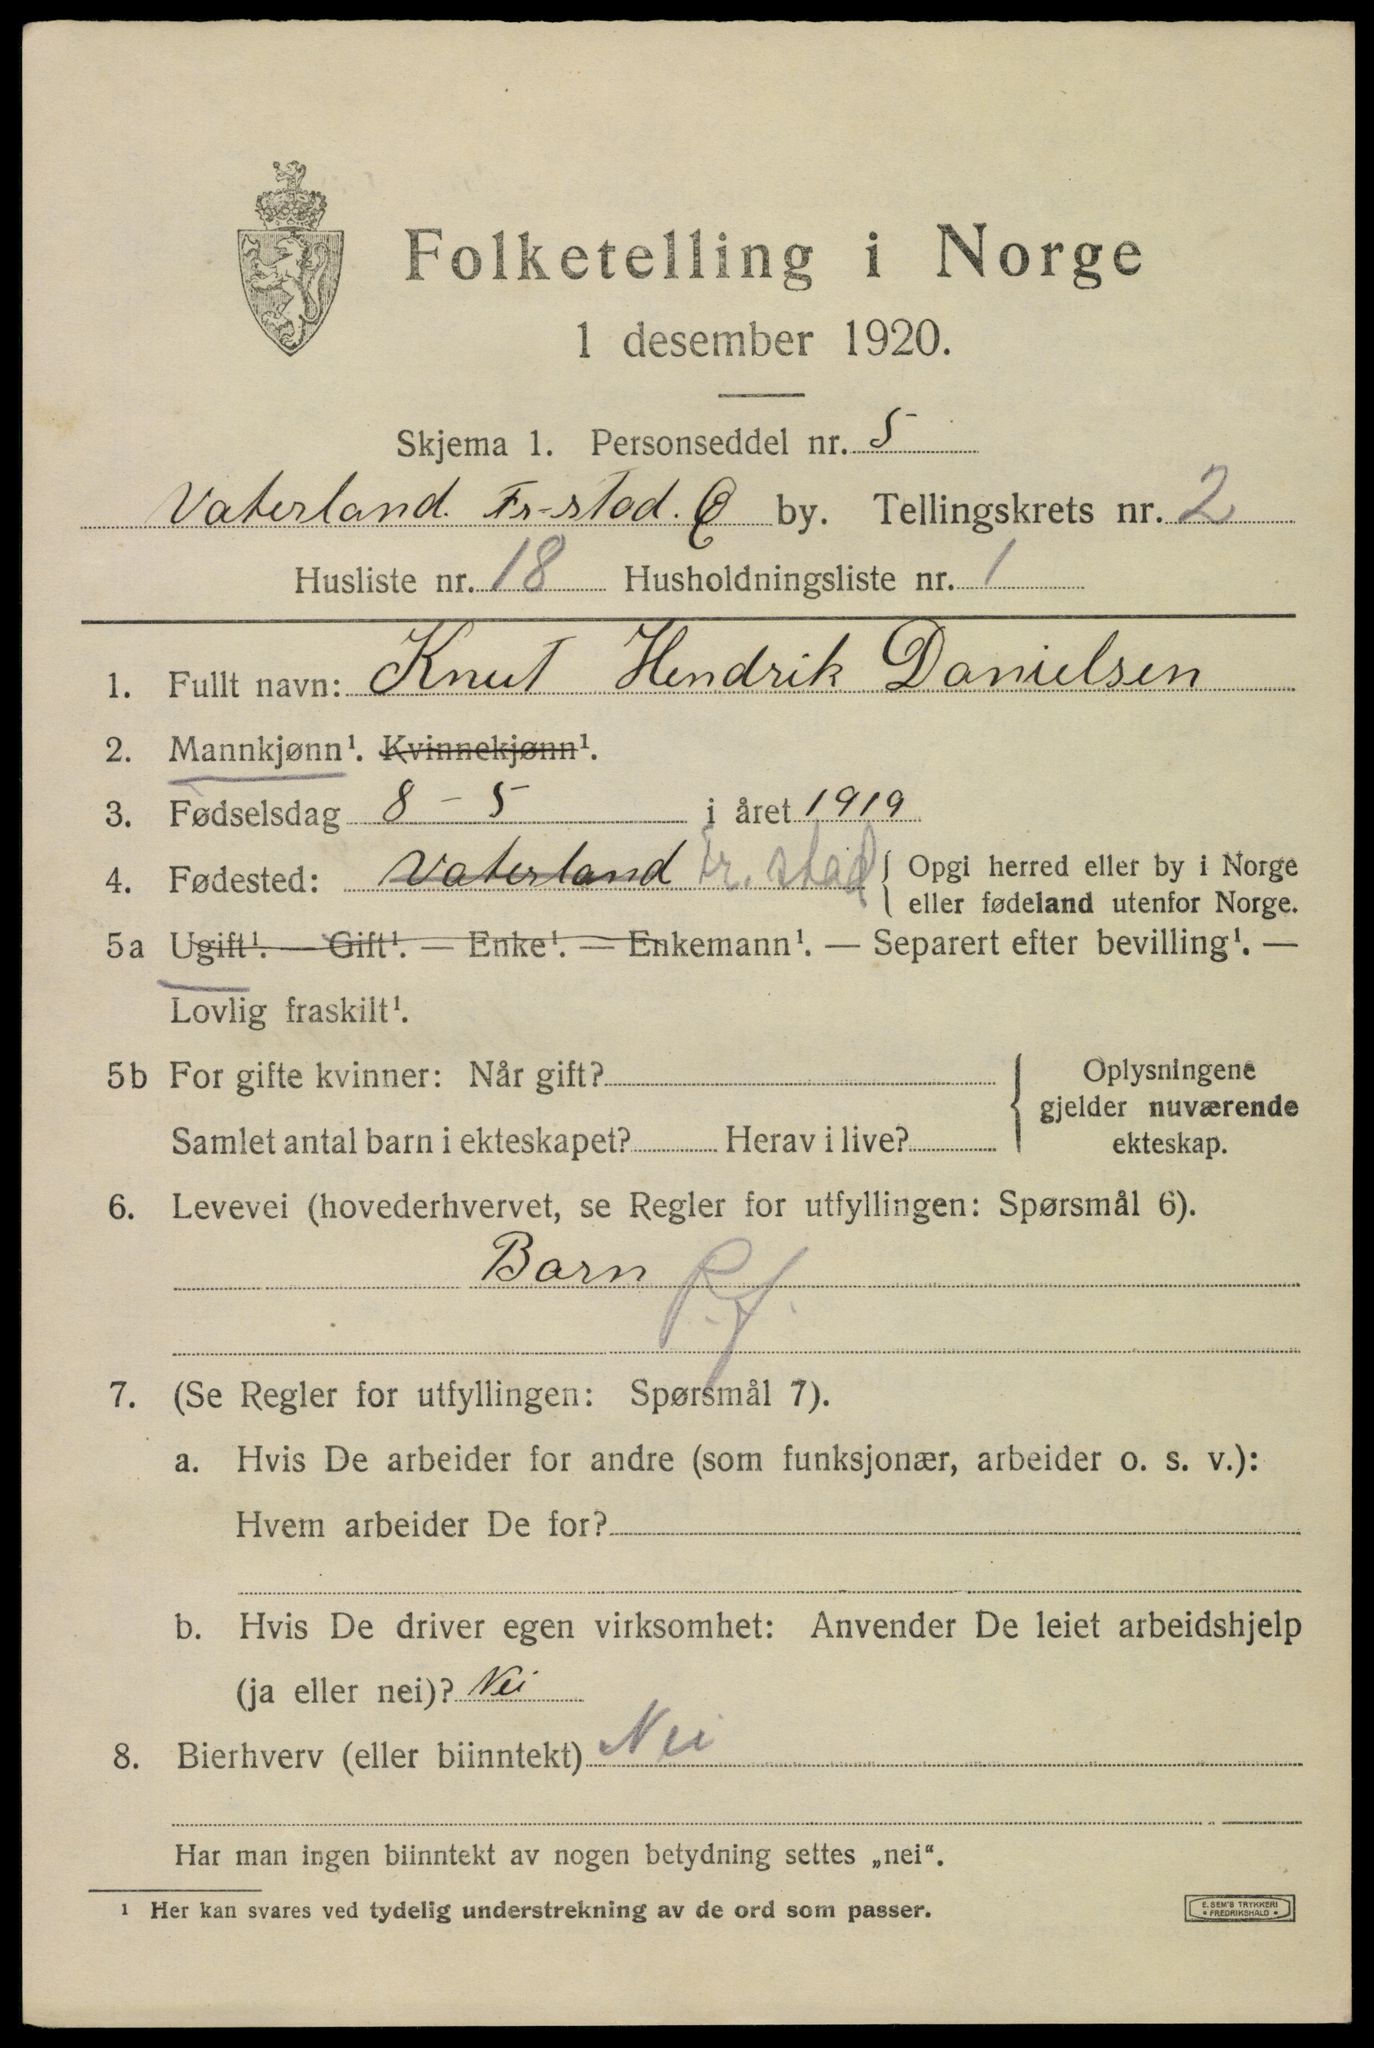 Folketelling i Norge
1 desember 1920.
Skjema 1. Personseddel nr. 5
Vaterland. Fr-stad. by. Tellingskrets nr. 2
Husliste nr. 18 Husholdningsliste nr. 1
1. Fullt navn: Knut Hendrik Danielsen
2. Mannkjønn¹. Kvinnekjønn¹.
3. Fødselsdag 8 - 5 i året 1919
4. Fødested: Vaterland Fr. stad { Opgi herred eller by i Norge
eller fødeland utenfor Norge.
5a Ugift¹. — Gift¹. — Enke¹. — Enkemann¹. — Separert efter bevilling¹. —
Lovlig fraskilt¹.
5b For gifte kvinner: Når gift?
Samlet antal barn i ekteskapet? Herav i live?
{ Oplysningene
gjelder nuværende
ekteskap.
6. Levevei (hovederhvervet, se Regler for utfyllingen: Spørsmål 6).
Barn P.f.
7. (Se Regler for utfyllingen: Spørsmål 7).
a. Hvis De arbeider for andre (som funksjonær, arbeider o. s. v.):
Hvem arbeider De for?
b. Hvis De driver egen virksomhet: Anvender De leiet arbeidshjelp
(ja eller nei)? Nei
8. Bierhverv (eller biinntekt) Nei
Har man ingen biinntekt av nogen betydning settes „nei“.
¹ Her kan svares ved tydelig understrekning av de ord som passer.
E. SEM'S TRYKKERI
• FREDRIKSHALD •